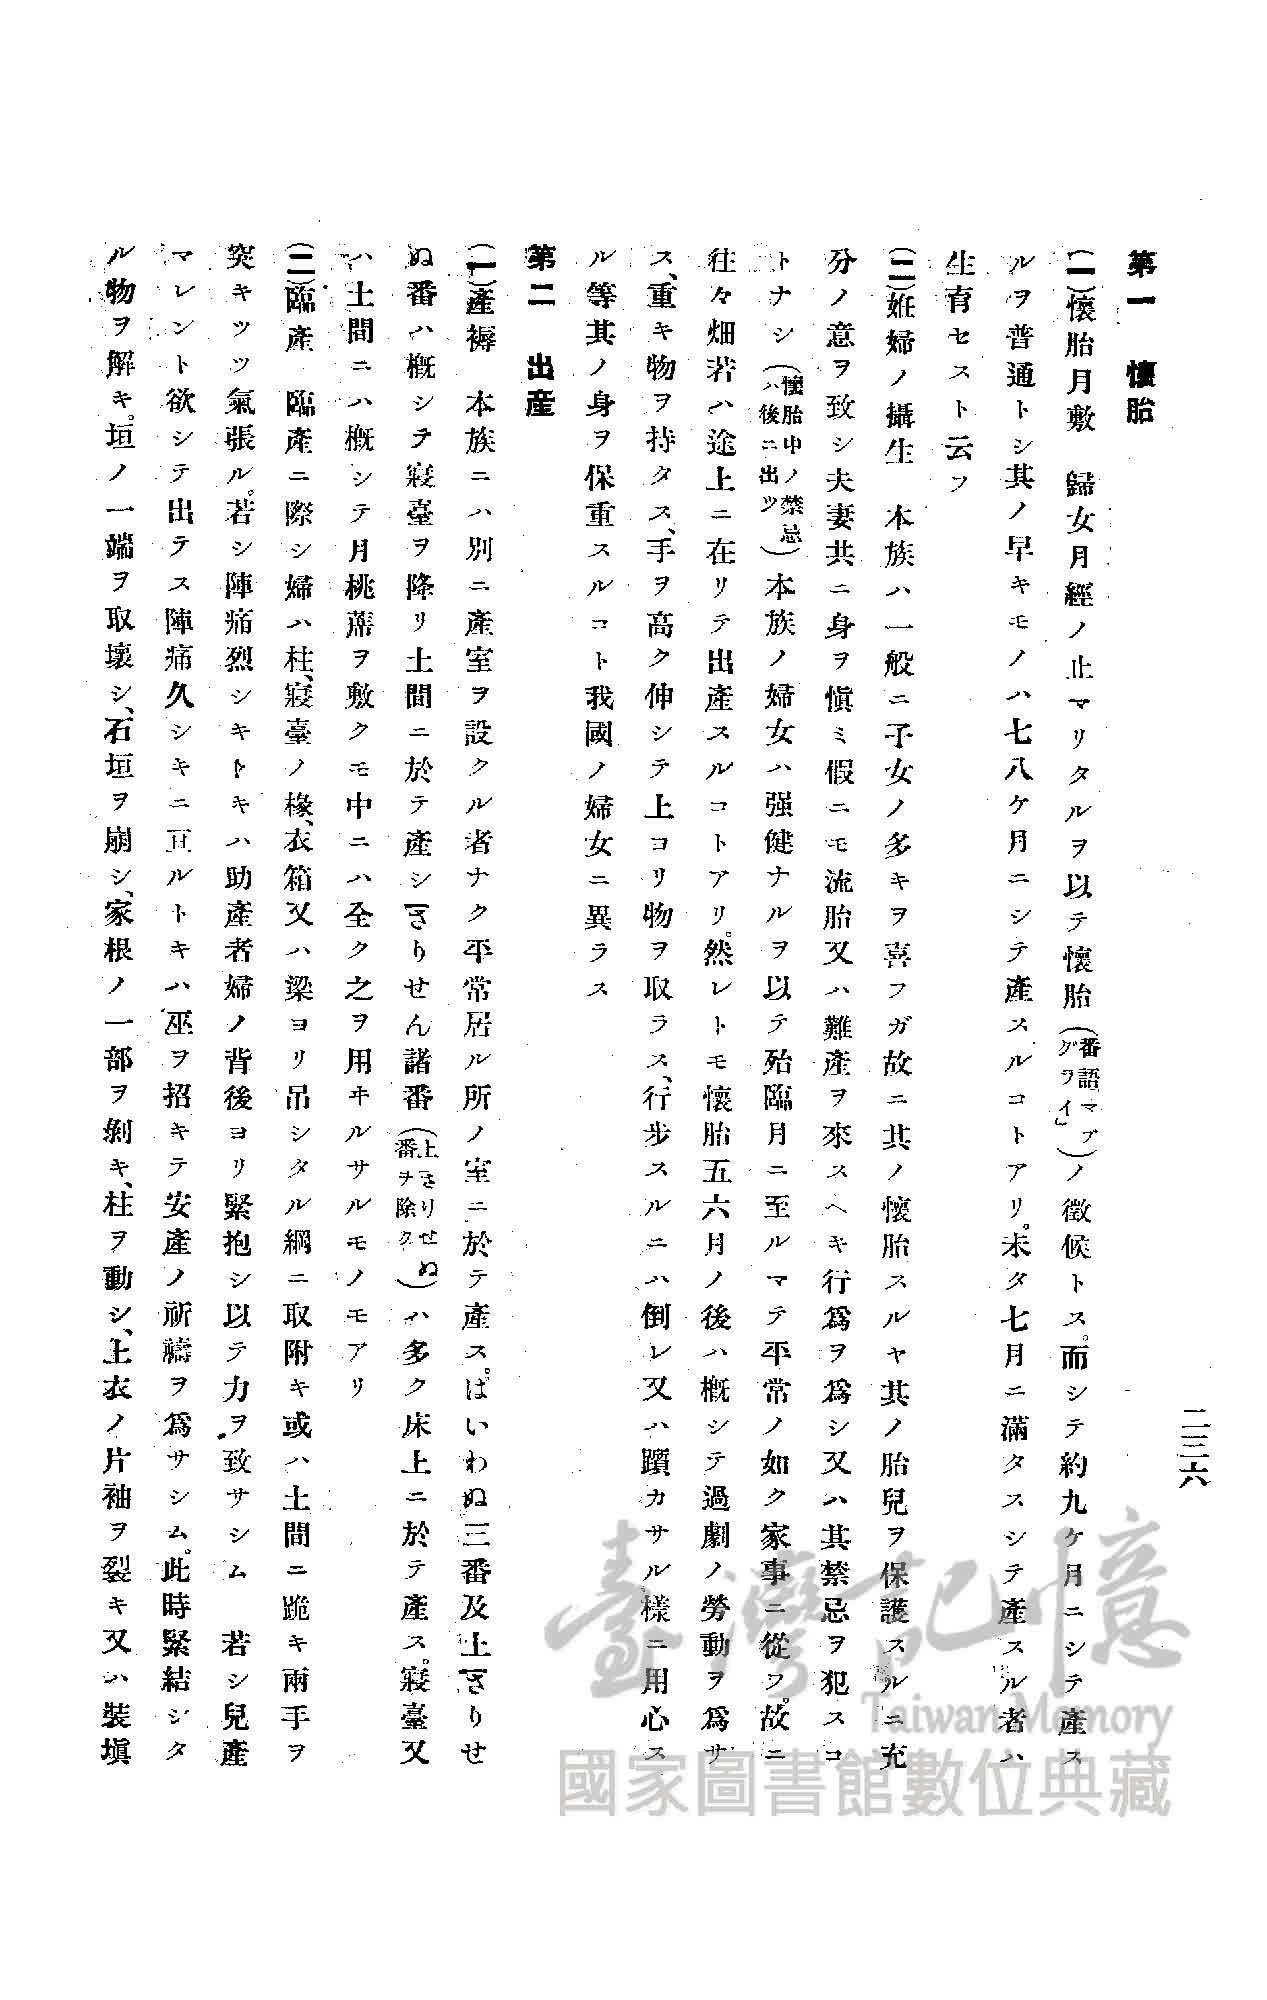 二三六
第一　懷胎
(一)懷胎月敷　歸女月經ノ止マリタルヲ以テ懷胎(番語「マブグラィ」)ノ徵候トス。而シテ約九ケ月ニシテ產ス
ルヲ普通トシ其ノ早キモノハ七八ケ月ニシテ產スルコトアリ。未タ七月ニ滿タスシテ產スル者ハ
生育セスト云フ
(二)姙婦ノ攝生　本族ハ一般ニ子女ノ多キヲ喜フガ故ニ其ノ懷胎スルヤ其ノ胎兒ヲ保護スルニ充
分ノ意ヲ致シ夫妻共ニ身ヲ愼ミ假ニモ流胎又ハ難產ヲ來スヘキ行爲ヲ爲シ又ハ其禁忌ヲ犯スコ
トナシ(懷胎中ノ禁忌ハ後ニ出ツ)本族ノ婦女ハ强健ナルヲ以テ殆臨月ニ至ルマテ平常ノ如ク家事ニ從フ。故ニ
往々畑若ハ途上ニ在リテ出產スルコトアリ。然レトモ懷胎五六月ノ後ハ槪シテ過劇ノ勞動ヲ爲サ
ス、重キ物ヲ持タス、手ヲ高ク伸シテ上ヨリ物ヲ取ラス、行步スルニハ倒レ又ハ躓カサル樣ニ用心ス
ル等其ノ身ヲ保重スルコト我國ノ婦女ニ異ラス
第二　出産
(一)產褥　本族ニハ別ニ產室ヲ設クル者ナク平常居ル所ノ室ニ於テ產ス。ぱいわぬ三番及上ざりせ
ぬ番ハ槪シテ寢臺ヲ降リ土間ニ於テ產シざりせん諸番(上ざりせぬ番ヲ除ク)ハ多ク床上ニ於テ產ス。寢臺又
ハ土間ニハ槪シテ月桃蓆ヲ敷クモ中ニハ全ク之ヲ用ヰルサルモノモアリ
(二)臨產　臨產ニ際シ婦ハ柱、寢臺ノ椽、衣箱又ハ梁ヨリ吊シタル綱ニ取附キ或ハ土間ニ跪キ兩手ヲ
突キツツ氣張ル。若シ陣痛烈シキトキハ助產者婦ノ背後ヨリ緊抱シ以テ力ヲ致サシム　若シ兒產
マレント欲シテ出テス陣痛久シキニ亘ルトキハ巫ヲ招キテ安產ノ祈禱ヲ爲サシム。此時緊結シタ
ル物ヲ解キ。垣ノ一端ヲ取壞シ、石垣ヲ崩シ、家根ノ一部ヲ剝キ、柱ヲ動シ、上衣ノ片袖ヲ裂キ又ハ裝塡
臺灣記憶
Taiwan Memory
國家圖書館數位典藏